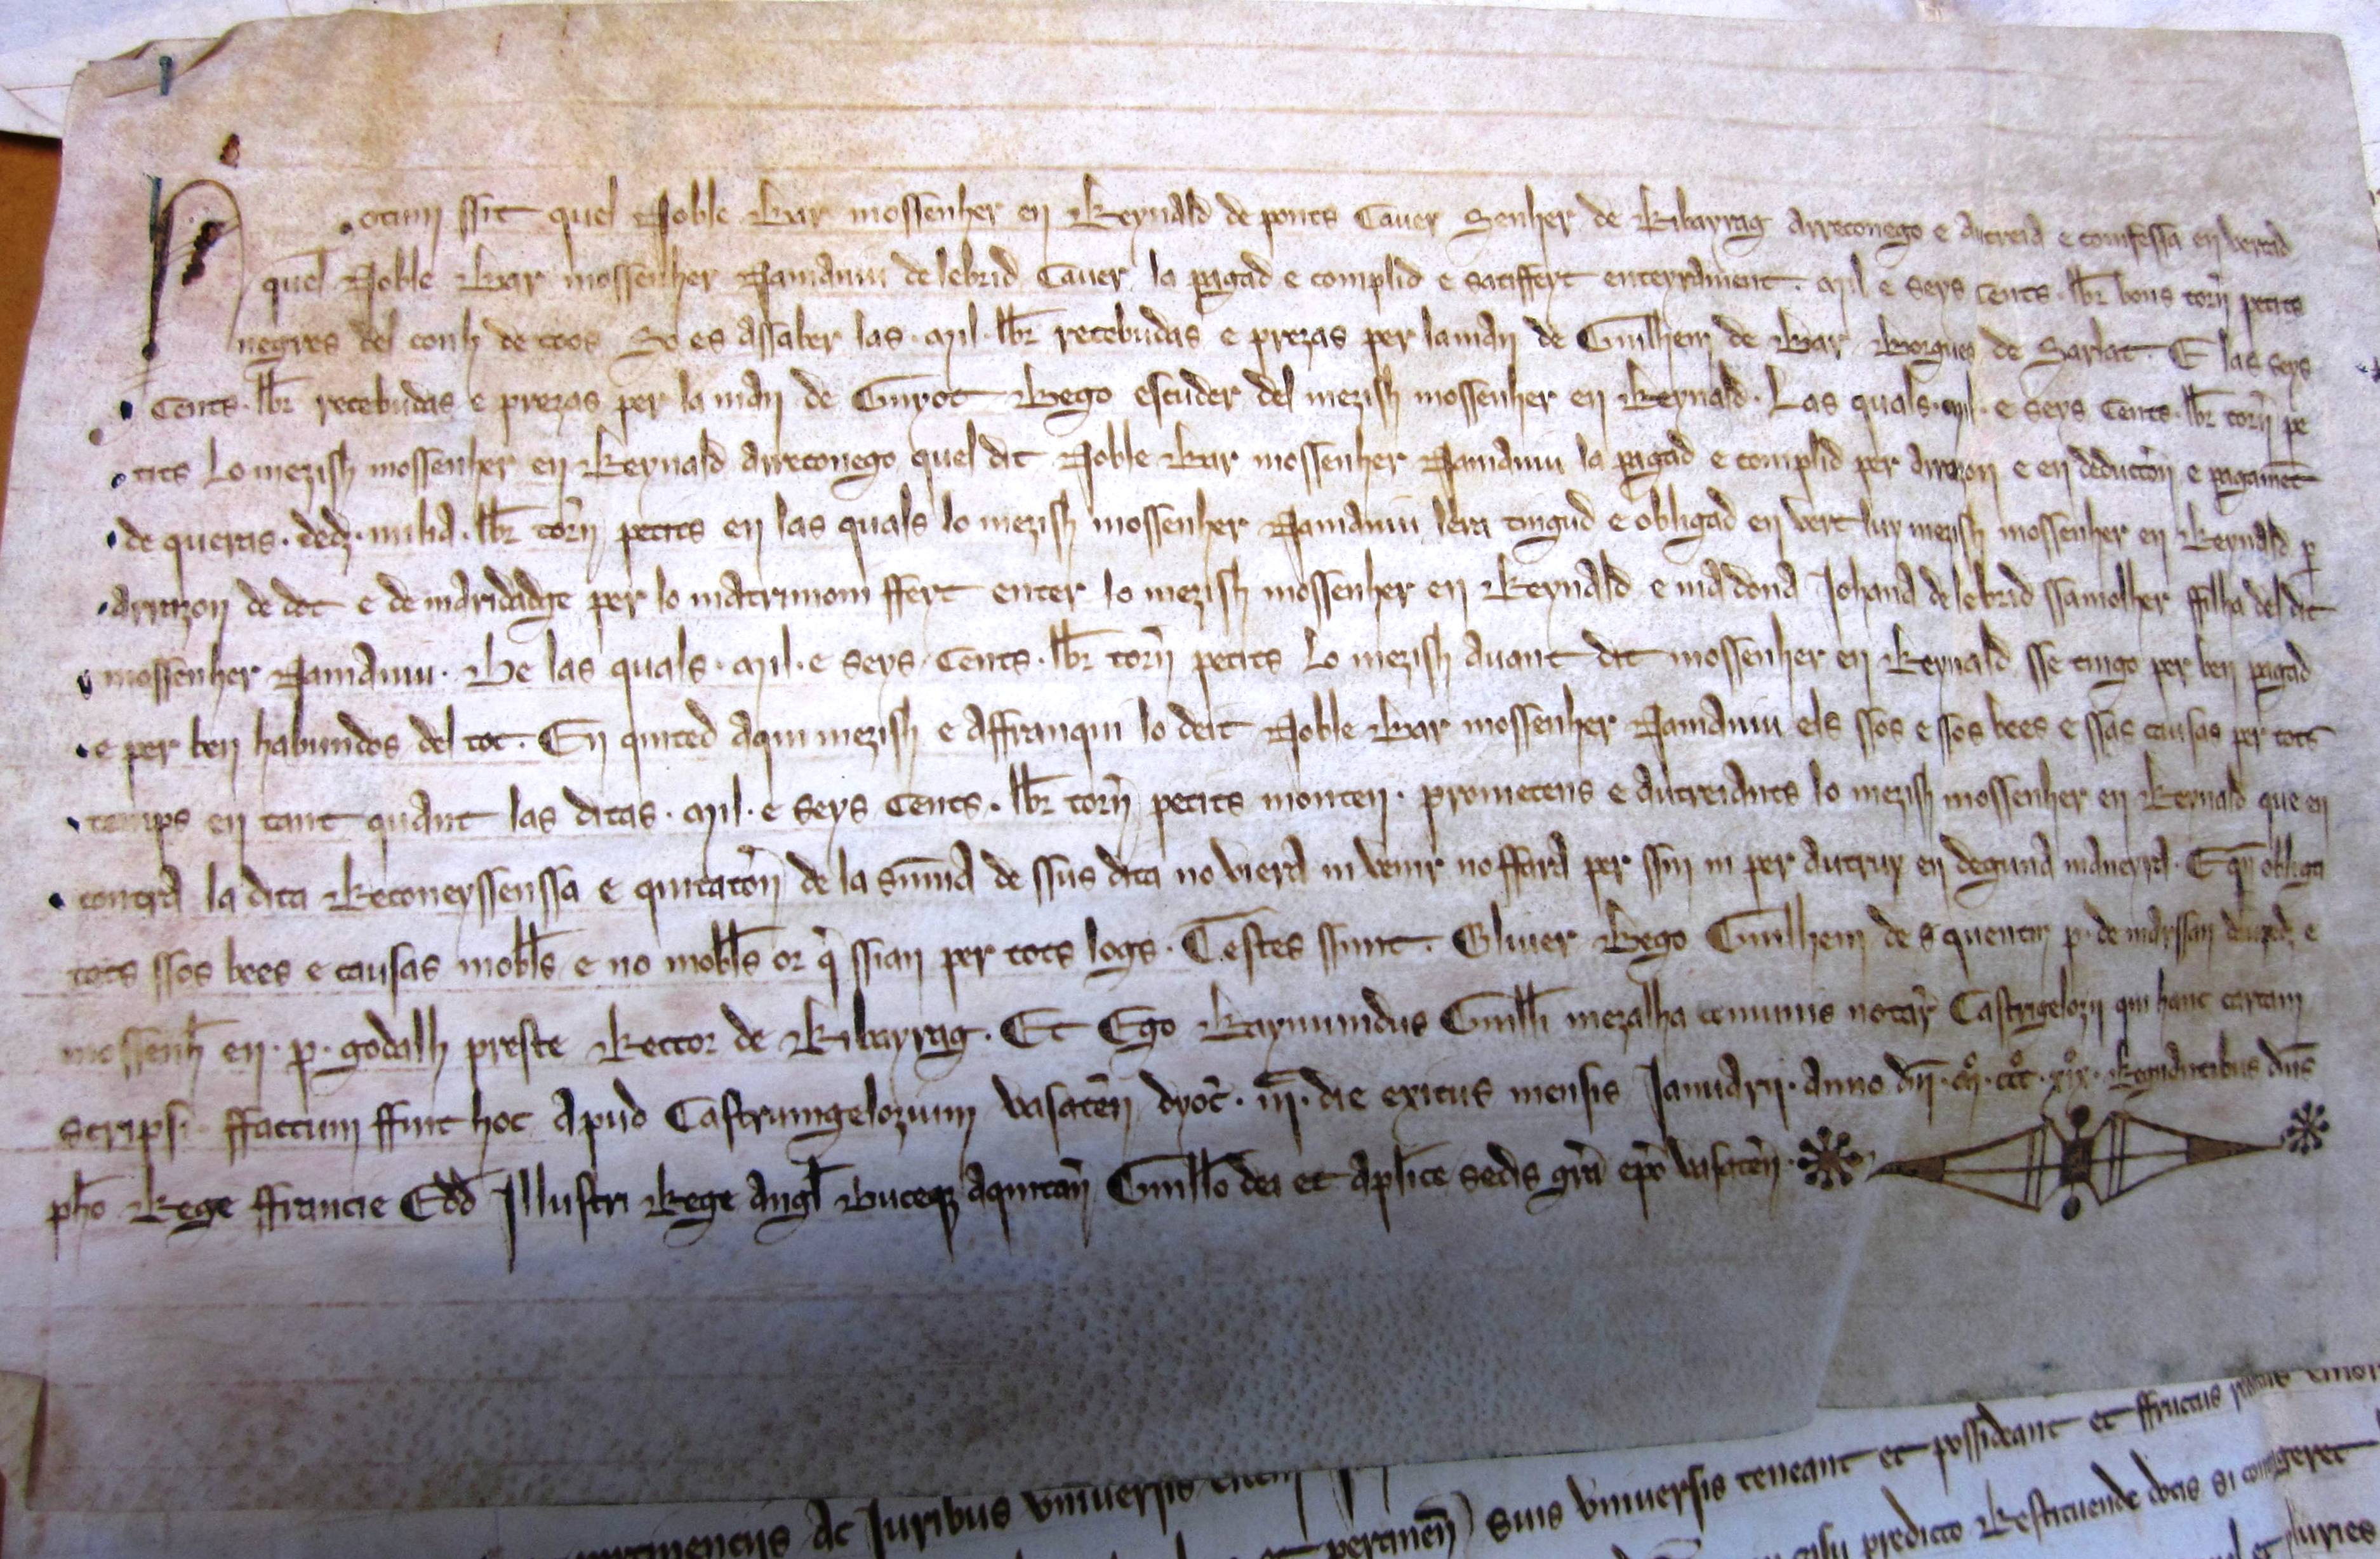 Notum ssit quel Noble Bar mossenher en Reynald de ponts Cauer Senher de Ribayrag arreconego e autreia e comfessa en vertad
quel Noble Bar mossenher Namaniu de lebrid Cauer la pagad e complid e satiffeyt enteyrament · Mil e seys Cents · lbr bons torn petits
negres del conh de toos So es assaber las · Mil · lbr recebudas e prezas per la man de Guilhem de Bar Borgues de Sarlat · E las seys
Cents · lbr recebudas e prezas per la man de Guyot Bego escuder del mezish mossenher en Reynald · Las quals · Mil · e seys Cents · lbr torn pe
tits Lo mezish mossenher en Reynald arreconego quel dit Noble Bar mossenher Namaniu la pagad e complid per arrazon e en deducton e pagamet
de queras · dedz · milia · lbr torn petits en las quals lo mezish mossenher Namaniu lera tingud e obligad en vert luy mezish mossenher en Reynald p
arrazon de dot e de maridadge per lo matrimoni ffeyt enter lo mezish mossenher en Reynald e ma dona Johana de lebrid ssa molher ffilha del dit
mossenher Namaniu · De las quals · Mil · e seys Cents · lbr torn petits Lo mezish auant dit mossenher en Reynald sse tingo per ben pagad
e per ben habundos del tot · En quited aqui mezish e affranqui lo deit Noble Bar mossenher Namaniu els ssos e ssos bees e ssas causas per tots
temps en tant quant las ditas · Mil · e seys Cents · lbr torn petits monten · prometens e autreiants lo mezish mossenher en Reynald que en
contra la dita Reconeyssenssa e quitaton de la suma de ssus dita no viera ni venir no ffara per ssin ni per autruy en deguna maneyra · E qn obliga
tots ssos bees e causas mobls e no mobls or q ssian per tots logs · Testes ssunt · Oliuer Bego Guilhem de s quentin p · de marssan e
mossenh en · p · godalh preste Rector de Ribayrag · Et Ego Raymundus Guilli mezalha comunis notar Castrigelozii qui hanc cartam
scripsi · ffactum ffuit hoc apud Castrumgelozum vasaten dyoc · iii · die exitus mensis Januarii · anno dni · Mo · ccco · xixo · Regnantibus dnis
pho Rege ffrancie Edd Illustri Rege angl Duceqz aquitan Guillo dei et aplice sedis gra epo vasaten ·
ac Juribus vniuersis
suis vniuersis teneant et possideant et ffructus
predicto Restituende dotis si contigeret